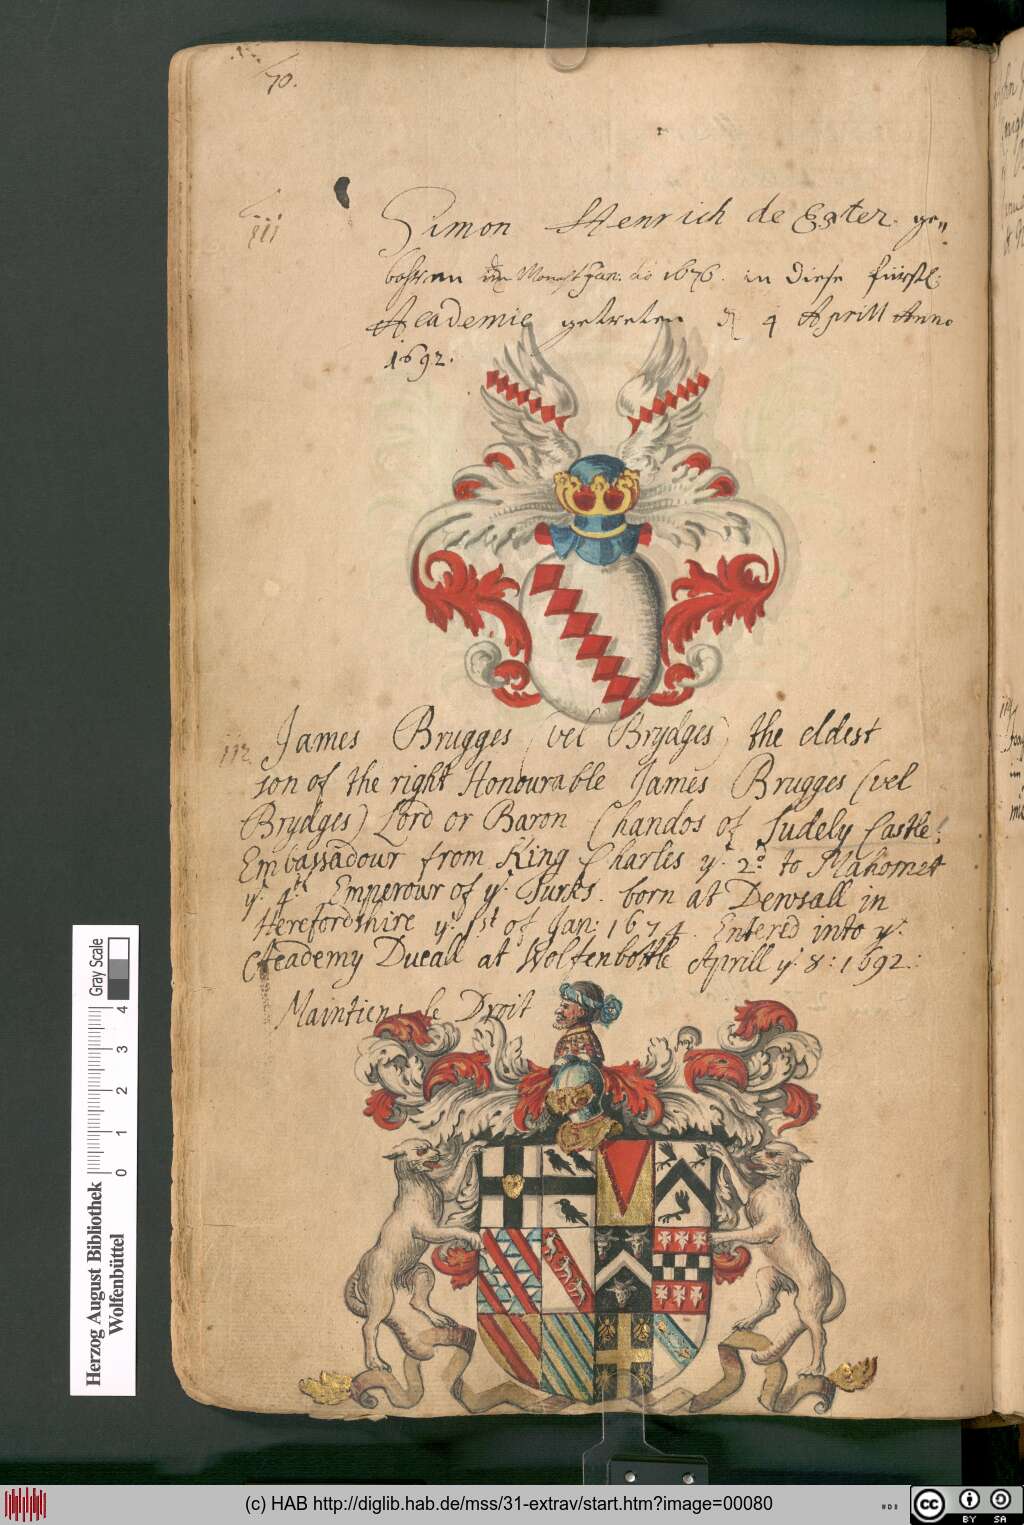 70.
111
Simon Henrich de Exter. ge„
bohren im Monaht Jan: do 1676. in diese fürstl.
Academie getreten d 4 Aprill Anno
1692.
112. James Brugges (vel Brydges) the eldest
son of the right Honourable James Brugges (vel
Brydges) Lord or Baron Chandos of Sudely Castle:
Embassadour from King Charles yᵉ 2ᵈ to Mahomet
yᵉ 4ᵗʰ Emperour of yᵉ Turks. born at Dewsall in
Herefordshire yᵉ 1st of Jan: 1674. Entered into yᵉ
Academy Ducall at Wolfenbottle Aprill yᵉ 8: 1692:
Maintiens le Droit
Gray Scale
0 1 2 3 4
Herzog August Bibliothek
Wolfenbüttel
(c) HAB http://diglib.hab.de/mss/31-extrav/start.htm?image=00080
cc
BY SA